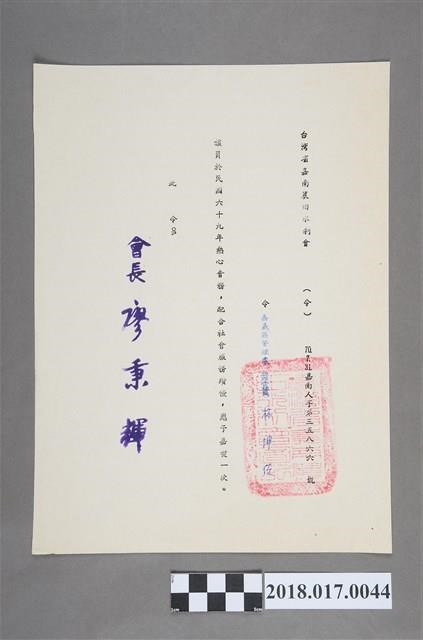 台灣省嘉南農田水利會 (令) 嘉南人字第三五八六六號
令 嘉義區管理處 林
該員於民國六十九年熱心會務，配合社會服務績優，應予嘉獎一次。
此令
會長 廖秉輝
2018.017.0044